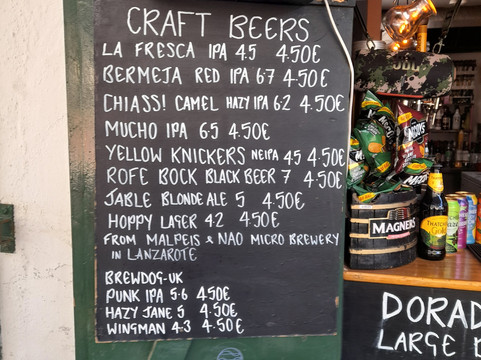 CRAFT BEERS
LA FRESCA IPA 4.5 4.50€
BERMEJA RED IPA 6.7 4.50€
CHIASS! CAMEL HAZY IPA 6.2 4.50€
MUCHO IPA 6.5 4.50€
YELLOW KNICKERS NEIPA 4.5 4.50€
ROFE BOCK BLACK BEER 7 4.50€
JABLE BLONDE ALE 5 4.50€
HOPPY LAGER 4.2 4.50€
FROM MALPEIS & NAO MICRO BREWERY
IN LANZAROTE
BREWDOG-UK
PUNK IPA 5.6 4.50€
HAZY JANE 5 4.50€
WINGMAN 4.3 4.50€
MAGNERS
DORAD
LARGE